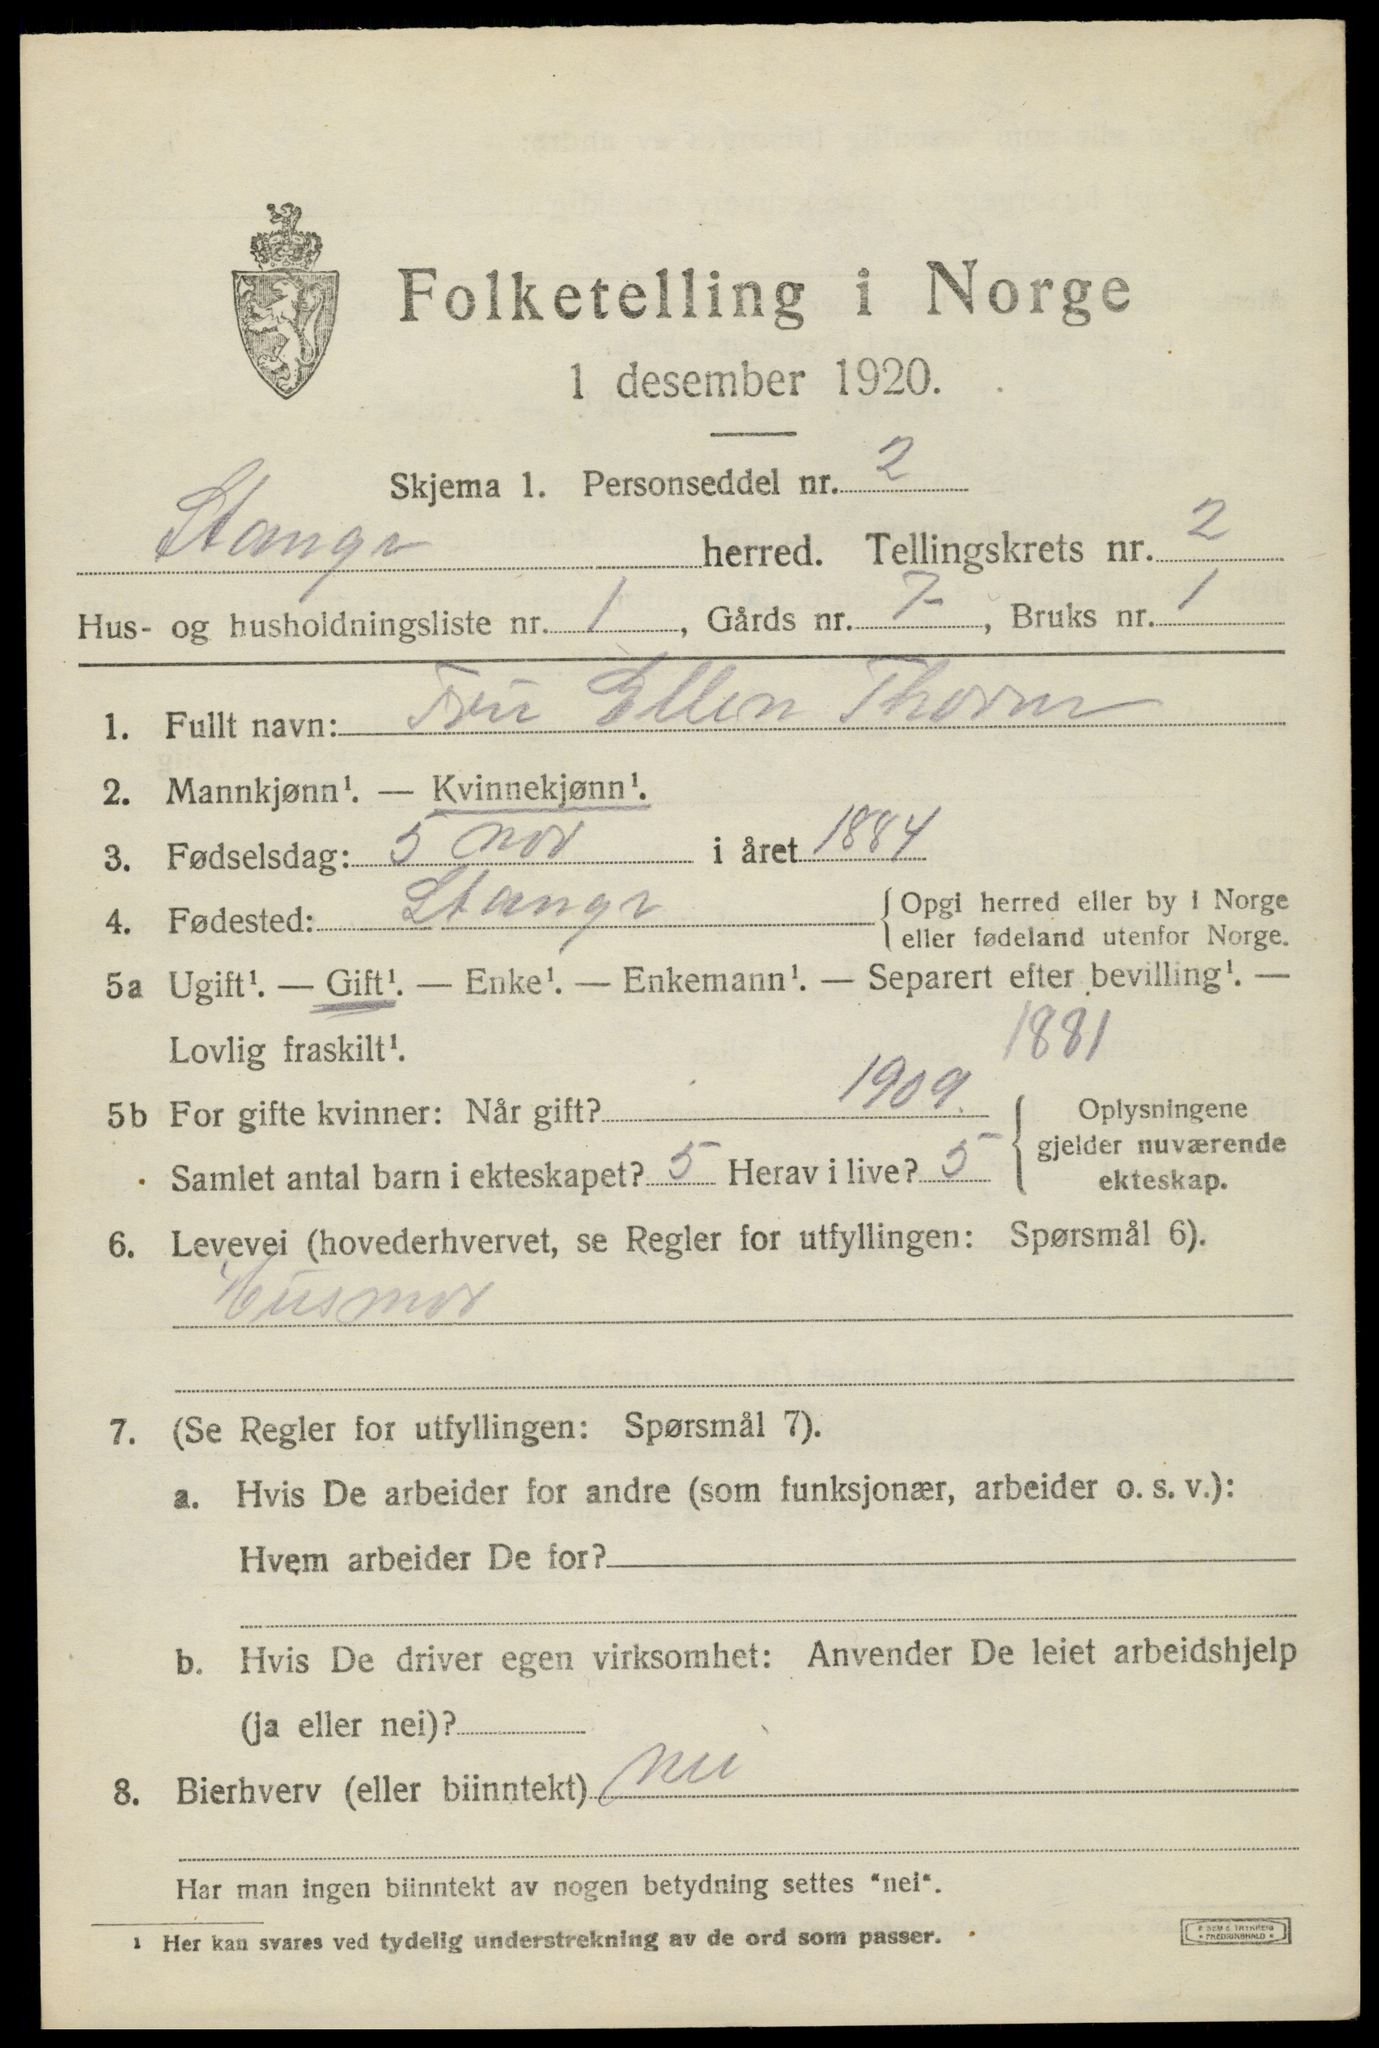 Folketelling i Norge
1 desember 1920.
Skjema 1. Personseddel nr. 2
Stange herred. Tellingskrets nr. 2
Hus- og husholdningsliste nr. 1, Gårds nr. 7, Bruks nr. 1
1. Fullt navn: Fru Ellen Thorne
2. Mannkjønn¹. — Kvinnekjønn¹.
3. Fødselsdag: 5 nov i året 1884
4. Fødested: Stange { Opgi herred eller by i Norge
eller fødeland utenfor Norge.
5a Ugift¹. — Gift¹. — Enke¹. — Enkemann¹. — Separert efter bevilling¹. —
Lovlig fraskilt¹. 1881
5b For gifte kvinner: Når gift? 1909. Oplysningene
gjelder nuværende
Samlet antal barn i ekteskapet? 5 Herav i live? 5 ekteskap.
6. Levevei (hovederhvervet, se Regler for utfyllingen: Spørsmål 6).
Husmor
7. (Se Regler for utfyllingen: Spørsmål 7).
a. Hvis De arbeider for andre (som funksjonær, arbeider o. s. v.):
Hvem arbeider De for?
b. Hvis De driver egen virksomhet: Anvender De leiet arbeidshjelp
(ja eller nei)?
8. Bierhverv (eller biinntekt) nei
Har man ingen biinntekt av nogen betydning settes "nei".
¹ Her kan svares ved tydelig understrekning av de ord som passer.